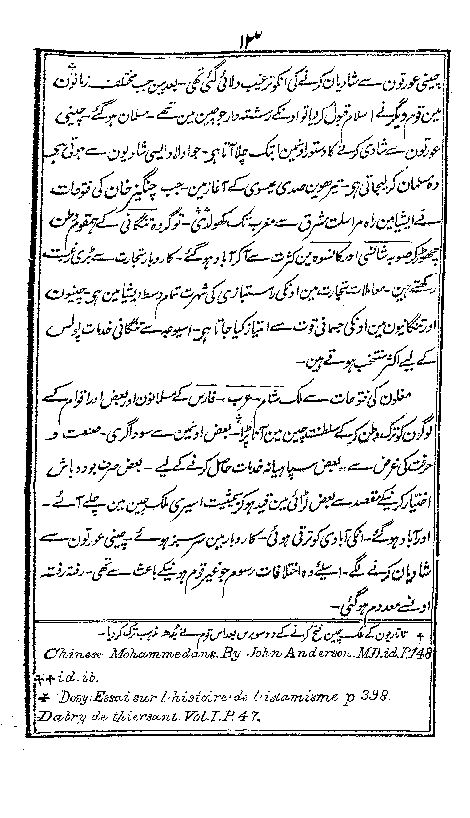 ۱۳
چینی عورتون سے شادیان کرنے کی انکو ترغیب دلائی گئی تھی - بعد مین جب مختلف زمانون
مین قوم دیگر نے اسلام قبول کر لیا تو اونکے رشتہ دار جو چین مین تھے - مسلمان ہو گئے - چینی
عورتون سے شادی کرنے کا دستور اونمین ابتک چلا آتا ہی - جو اولاد ایسی شادیون سے ہوتی ہی
وہ مسلمان کر لیجاتی ہو - تیرھوین صدی عیسوی کے آغاز مین - جب چنگیز خان کی فتوحات
نے ایشا مین راہ مراسلت مشرق سے مغرب تک کھولدی - تو گروہ تنگانی کے ہمقوم وطن
چھوڑ کر صوبہ شانسی اور کانسوہ مین کثرت سے آکر آباد ہو گئے - کاروبار تجارت سے بڑی رغبت
رکھتے ہین - معاملات تجارت مین اونکی راستبازی کی شہرت تمام وسط ایشا مین ہی - چینیون
اور تنگانیون مین اونکی جسمانی قوت سے امتیاز کیا جاتا ہی - اسیوجہ سے تنگانی خدمات پولس
کے لیے اکثر منتخب ہوتے ہین -
مغلون کی فتوحات سے ملک شام - عرب - فارس کے مسلمانون اور بعض اور اقوام کے
لوگون کو ترک وطن کر کے سلطنت چین مین آنا پڑا - بعض اونمین سے سوداگری - صنعت و
حرفت کی غرض سے - بعض سپاہیانہ خدمات حاصل کرنے کے لیے - بعض صرف بود و باش
اختیار کرنیکے مقصد سے بعض لڑائی مین قید ہو کر بحیثیت اسیری ملک چین مین چلے آئے -
اور آباد ہو گئے - انکی آبادی کو ترقی ہوئی - کاروبار مین سرسبز ہوئے - چینی عورتون سے
شادیان کرنے لگے - اسلئے وہ اختلافات رسوم جو غیر قوم ہونیکے باعث سے تھی - رفتہ رفتہ
اونسے معدوم ہو گئی -
+ تاتاریون کے ملک چین فتح کرنے کے دو سو برس بعد اس قوم نے بُدھ مذہب ترک کر دیا -
Chinese Mohammedans. By John Anderson. M.D. id. P. 148
++ id. ib.
* Dozy: Essai sur l'histoire de l'islamisme p 398.
Dabry de thiersant. Vol. I. P. 47.